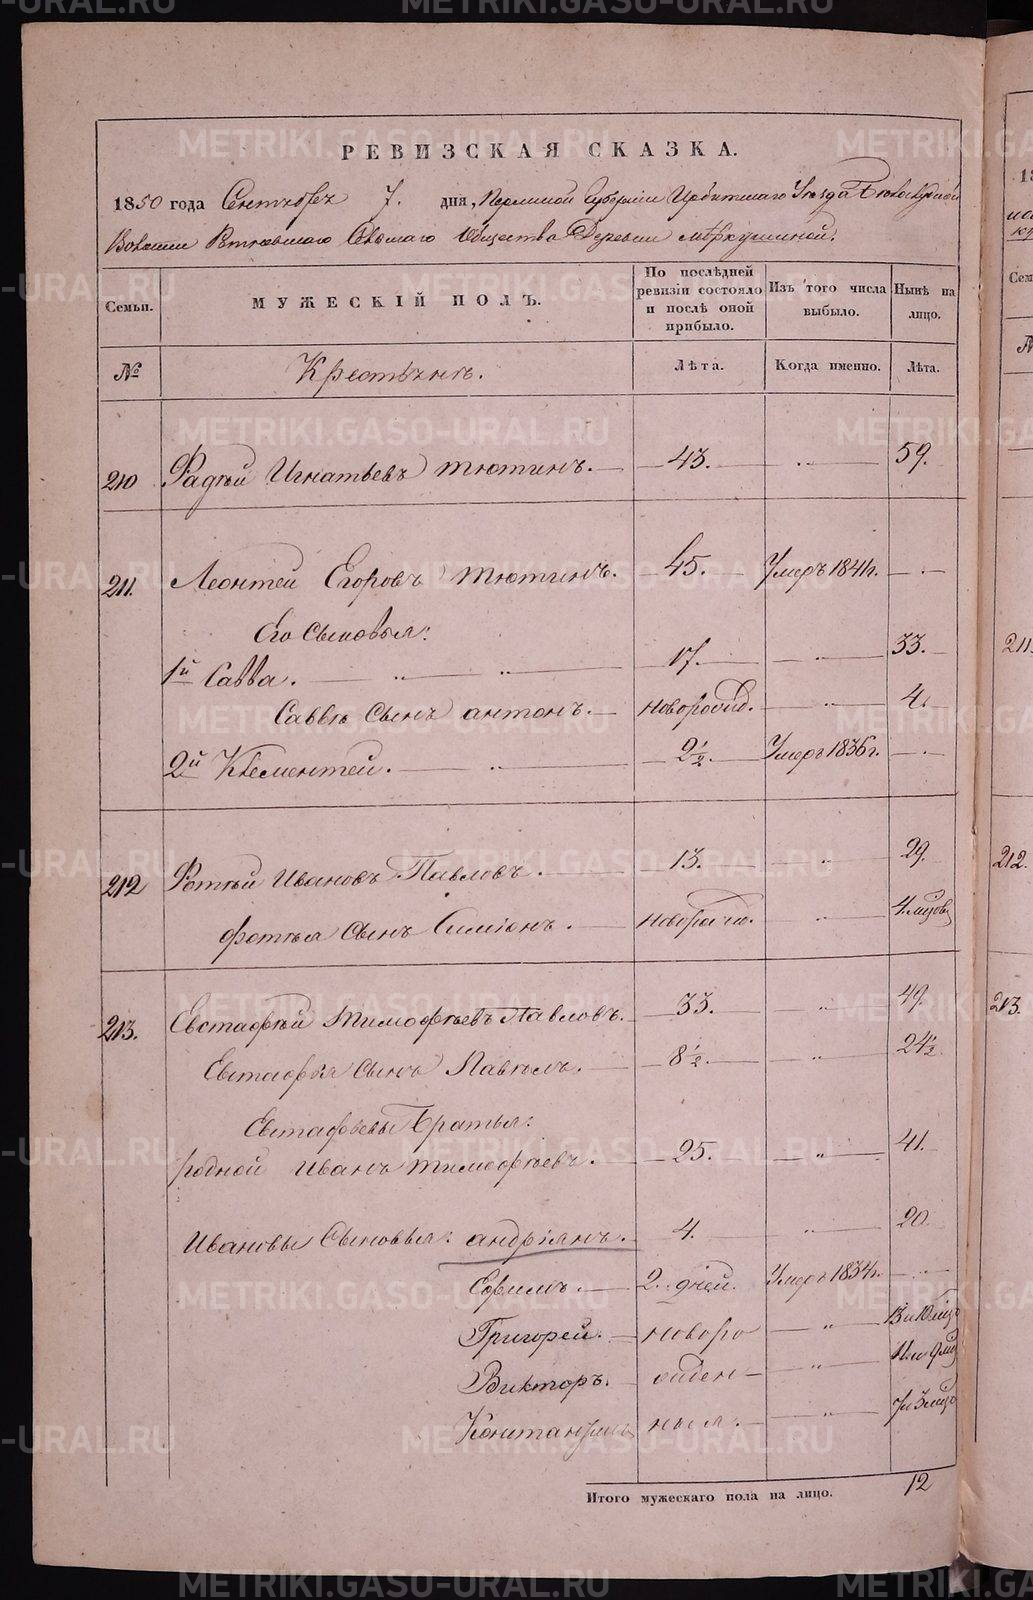 РЕВИЗСКАЯ СКАЗКА.
1850 года Сентября 7. дня, Пермской Губернии Ирбитскаго Уезда Белослудской
Волости Ретневскаго Сельскаго Общества Деревни Меркушиной.
Семьи. МУЖЕСКІЙ ПОЛЪ. По послѣдней ревизіи состояло и послѣ оной прибыло. Изъ того числа выбыло. Нынѣ на лицо.
№ Крестьянъ. Лѣта. Когда именно. Лѣта.
210 Фадѣй Игнатьевъ Тютинъ. 43. „ 59.
211. Леонтей Егоровъ Тютинъ. 45. Умеръ 1841г. „
Его Сыновья:
1й Савва. „ „ 17. „ 33.
Саввы Сынъ антонъ. новорожд. „ 4.
2й Клементей. „ 2½ Умеръ 1836г. „
212 Фотѣй Ивановъ Павловъ. 13. „ 29.
фотѣя Сынъ Симіонъ. новорожд. „ 4. мцовъ
213. Евстафѣй Тимофѣевъ Павловъ. 33. „ 49.
Евстафѣя Сынъ Павелъ. 8½. „ 24½
Евстафьевы Братья:
родной Иванъ тимофѣевъ. 25. „ 41.
Ивановы Сыновья: андріянъ. 4. „ 20.
Ефимъ. 2. дней. Умеръ 1834г. „
Григорей. новоро „
Викторъ. жден „
Константинъ ныя. „
Итого мужескаго пола на лицо. 12
211.
212.
213.
METRIKI.GASO-URAL.RU